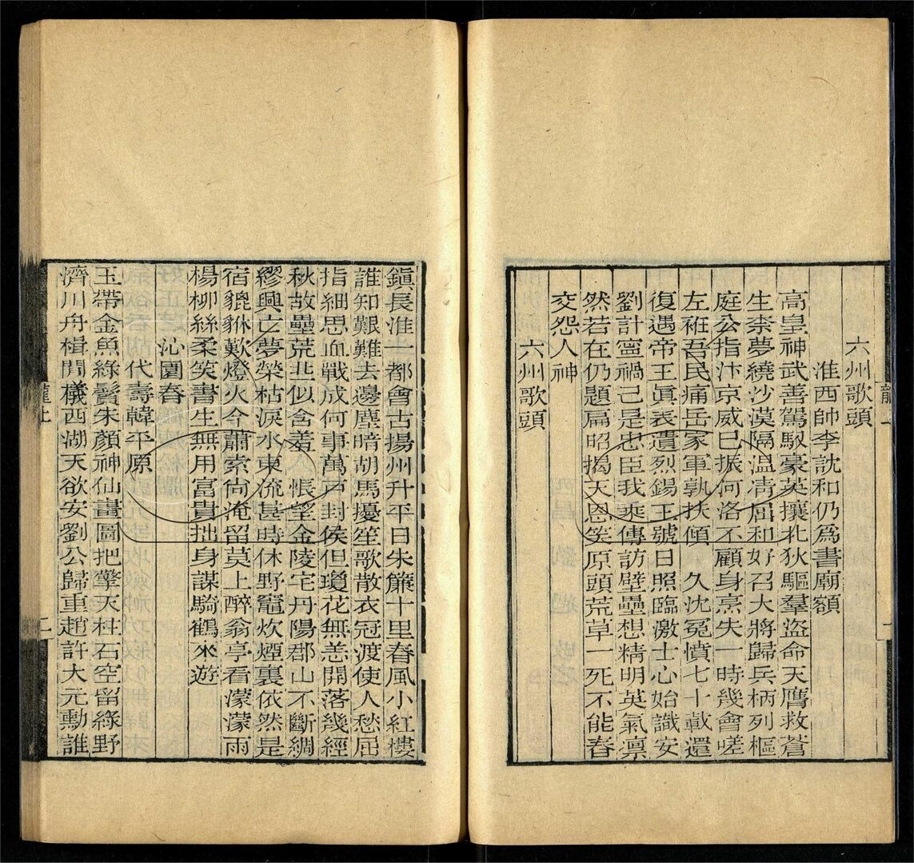 六州歌頭
淮西帥李訦和仍爲書廟額
高皇神武善駕馭豪英攘北狄驅羣盜命天膺救蒼
生柰夢繞沙漠隔溫凊屈和好召大將歸兵柄列樞
庭公指汴京威已振何洛不顧身烹失一時幾會嗟
左袵吾民痛岳家軍孰扶傾　久沈冤憤七十載還
復遇帝王眞表遺烈錫王號日照臨激士心始識安
劉計寧禍己是忠臣我乘傳訪壁壘想精明英氣凛
然若在仍題扁昭揭天恩笑原頭荒草一死不能春
交怨人神
六州歌頭
鎮長淮一都會古揚州升平日朱簾十里春風小紅樓
誰知艱難去邊塵暗胡馬擾笙歌散衣冠渡使人愁屈
指細思血戰成何事萬戸封侯但瓊花無恙開落幾經
秋故壘荒丘似含羞　悵望金陵宅丹陽郡山不斷綢
繆興亡夢榮枯淚水東流甚時休野竈炊煙裏依然是
宿貔貅歎燈火今蕭索尚淹留莫上醉翁亭看濛濛雨
楊柳絲柔笑書生無用富貴拙身謀騎鶴來遊
沁園春
代壽韓平原
玉帶金魚綠鬢朱顏神仙畫圖把擎天柱石空留綠野
濟川舟楫閒檥西湖天欲安劉公歸重趙許大元勳誰
龍上 二